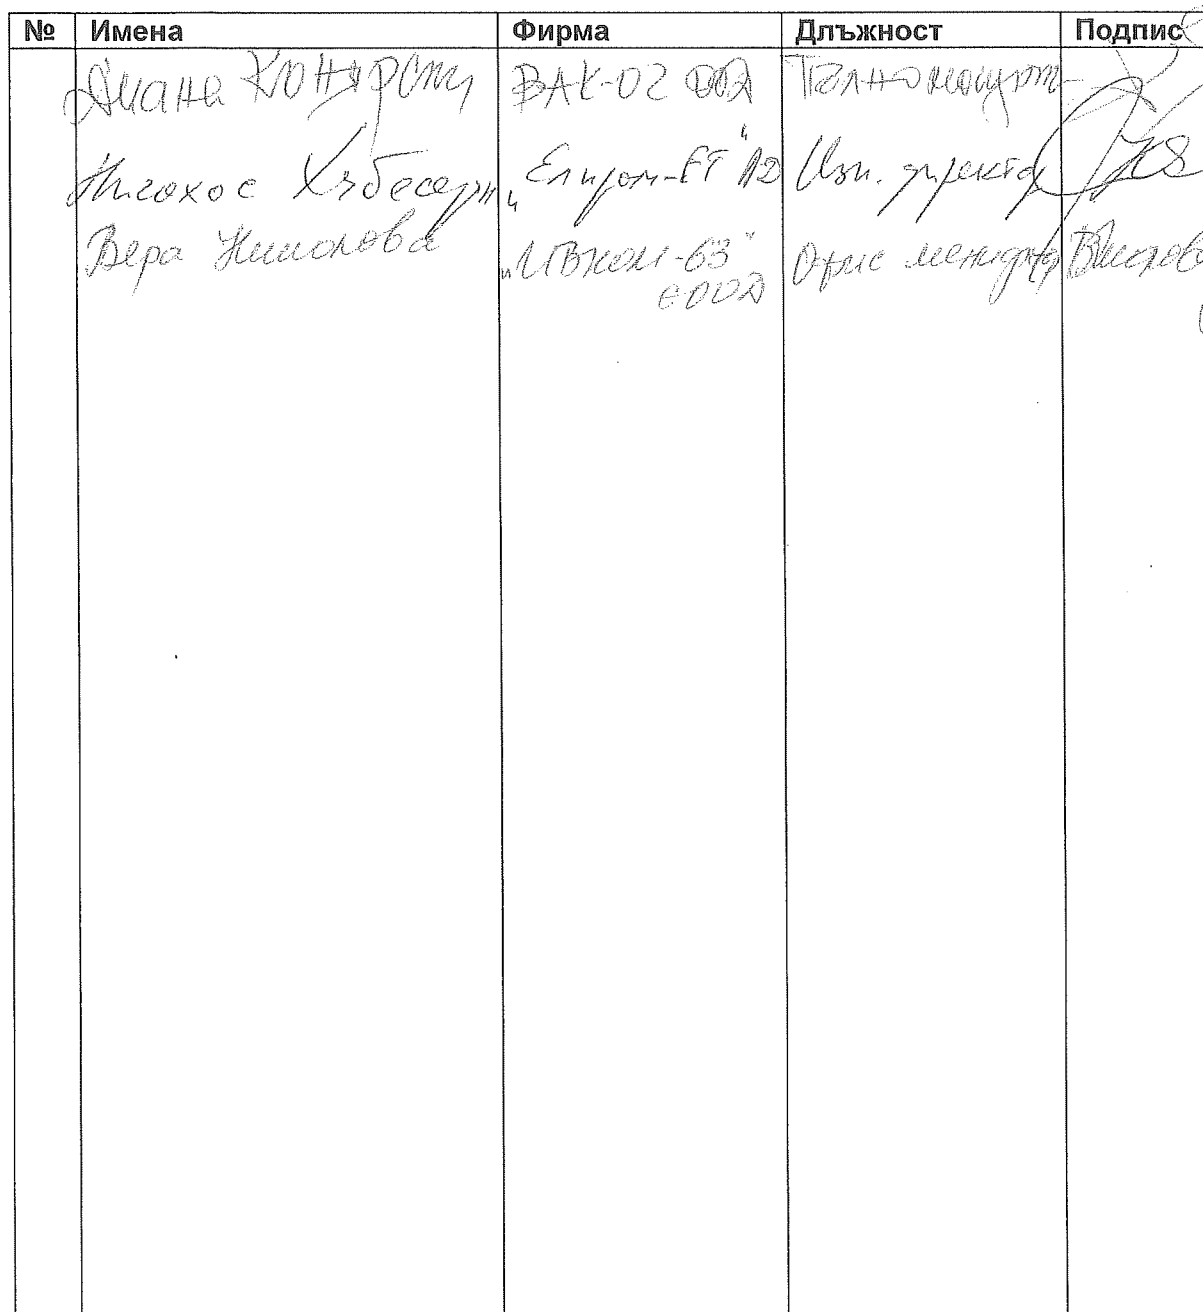 № Имена Фирма Длъжност Подпис
Диана ВАК-02 ООД Пълномощн-
Хубесерян "Елпром-ЕТ" АД Изп. директор
Вера Николова "ИВКОМ-63" Офис мениджър
ЕООД